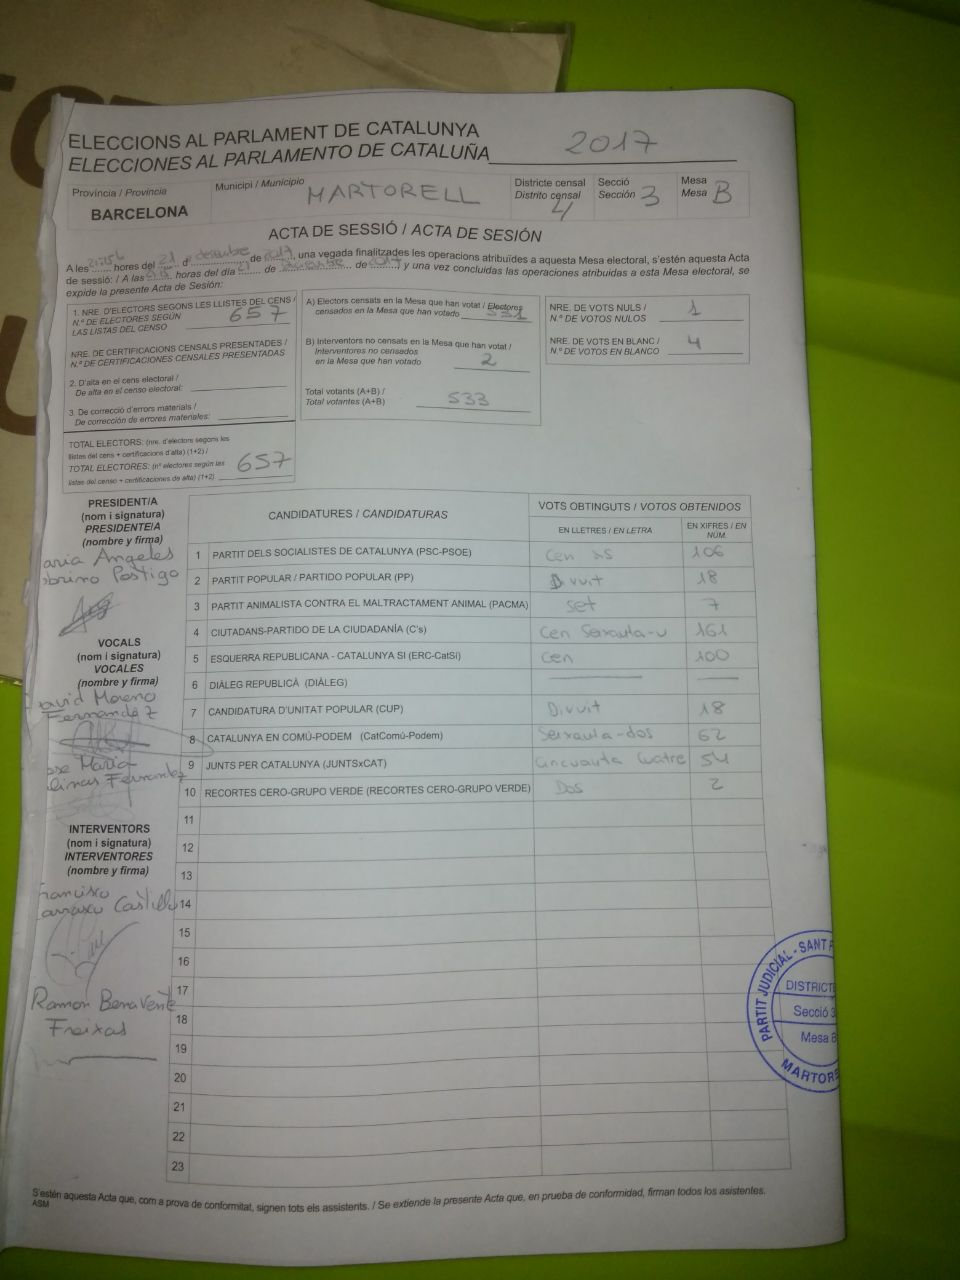 ELECCIONS AL PARLAMENT DE CATALUNYA
ELECCIONES AL PARLAMENTO DE CATALUÑA 2017
Província / Provincia
BARCELONA
Municipi / Municipio
MARTORELL
Districte censal
Distrito censal
4
Secció
Sección 3
Mesa
Mesa B
ACTA DE SESSIÓ / ACTA DE SESIÓN
A les hores del 21 d desembre de 2017, una vegada finalitzades les operacions atribuïdes a aquesta Mesa electoral, s'estén aquesta Acta
de sessió: / A las horas del día 21 de de 2017, y una vez concluidas las operaciones atribuidas a esta Mesa electoral, se
expide la presente Acta de Sesión:
1. NRE. D'ELECTORS SEGONS LES LLISTES DEL CENS /
N.º DE ELECTORES SEGÚN
LAS LISTAS DEL CENSO 657
NRE. DE CERTIFICACIONS CENSALS PRESENTADES /
N.º DE CERTIFICACIONES CENSALES PRESENTADAS
2. D'alta en el cens electoral /
De alta en el censo electoral:
3. De correcció d'errors materials /
De corrección de errores materiales:
TOTAL ELECTORS: (nre. d'electors segons les
llistes del cens + certificacions d'alta) (1+2) /
TOTAL ELECTORES: (nº electores según las
listas del censo + certificaciones de alta) (1+2) 657
A) Electors censats en la Mesa que han votat / Electores
censados en la Mesa que han votado 531
B) Interventors no censats en la Mesa que han votat /
Interventores no censados
en la Mesa que han votado 2
Total votants (A+B) /
Total votantes (A+B) 533
NRE. DE VOTS NULS /
N.º DE VOTOS NULOS 1
NRE. DE VOTS EN BLANC /
N.º DE VOTOS EN BLANCO 4
PRESIDENT/A
(nom i signatura)
PRESIDENTE/A
(nombre y firma)
aria Angeles
obrino Postigo
VOCALS
(nom i signatura)
VOCALES
(nombre y firma)
avid Moreno
Fernandez
ose Maria
linas Fernandez
INTERVENTORS
(nom i signatura)
INTERVENTORES
(nombre y firma)
rancisco
arrasco Castillo
Ramon Benavente
Freixas
CANDIDATURES / CANDIDATURAS
VOTS OBTINGUTS / VOTOS OBTENIDOS
EN LLETRES / EN LETRA
EN XIFRES / EN NÚM.
1 PARTIT DELS SOCIALISTES DE CATALUNYA (PSC-PSOE) Cen sis 106
2 PARTIT POPULAR / PARTIDO POPULAR (PP) Divuit 18
3 PARTIT ANIMALISTA CONTRA EL MALTRACTAMENT ANIMAL (PACMA) set 7
4 CIUTADANS-PARTIDO DE LA CIUDADANÍA (C's) Cen Seixauta-u 161
5 ESQUERRA REPUBLICANA - CATALUNYA SI (ERC-CatSí) Cen 100
6 DIÀLEG REPUBLICÀ (DIÀLEG)
7 CANDIDATURA D'UNITAT POPULAR (CUP) Divuit 18
8 CATALUNYA EN COMÚ-PODEM (CatComú-Podem) Seixauta-dos 62
9 JUNTS PER CATALUNYA (JUNTSxCAT) Cincuanta Cuatre 54
10 RECORTES CERO-GRUPO VERDE (RECORTES CERO-GRUPO VERDE) Dos 2
11
12
13
14
15
16
17
18
19
20
21
22
23
PARTIT JUDICIAL - SANT F
DISTRICTE
Secció 3
Mesa B
MARTORE
S'estén aquesta Acta que, com a prova de conformitat, signen tots els assistents. / Se extiende la presente Acta que, en prueba de conformidad, firman todos los asistentes.
ASM